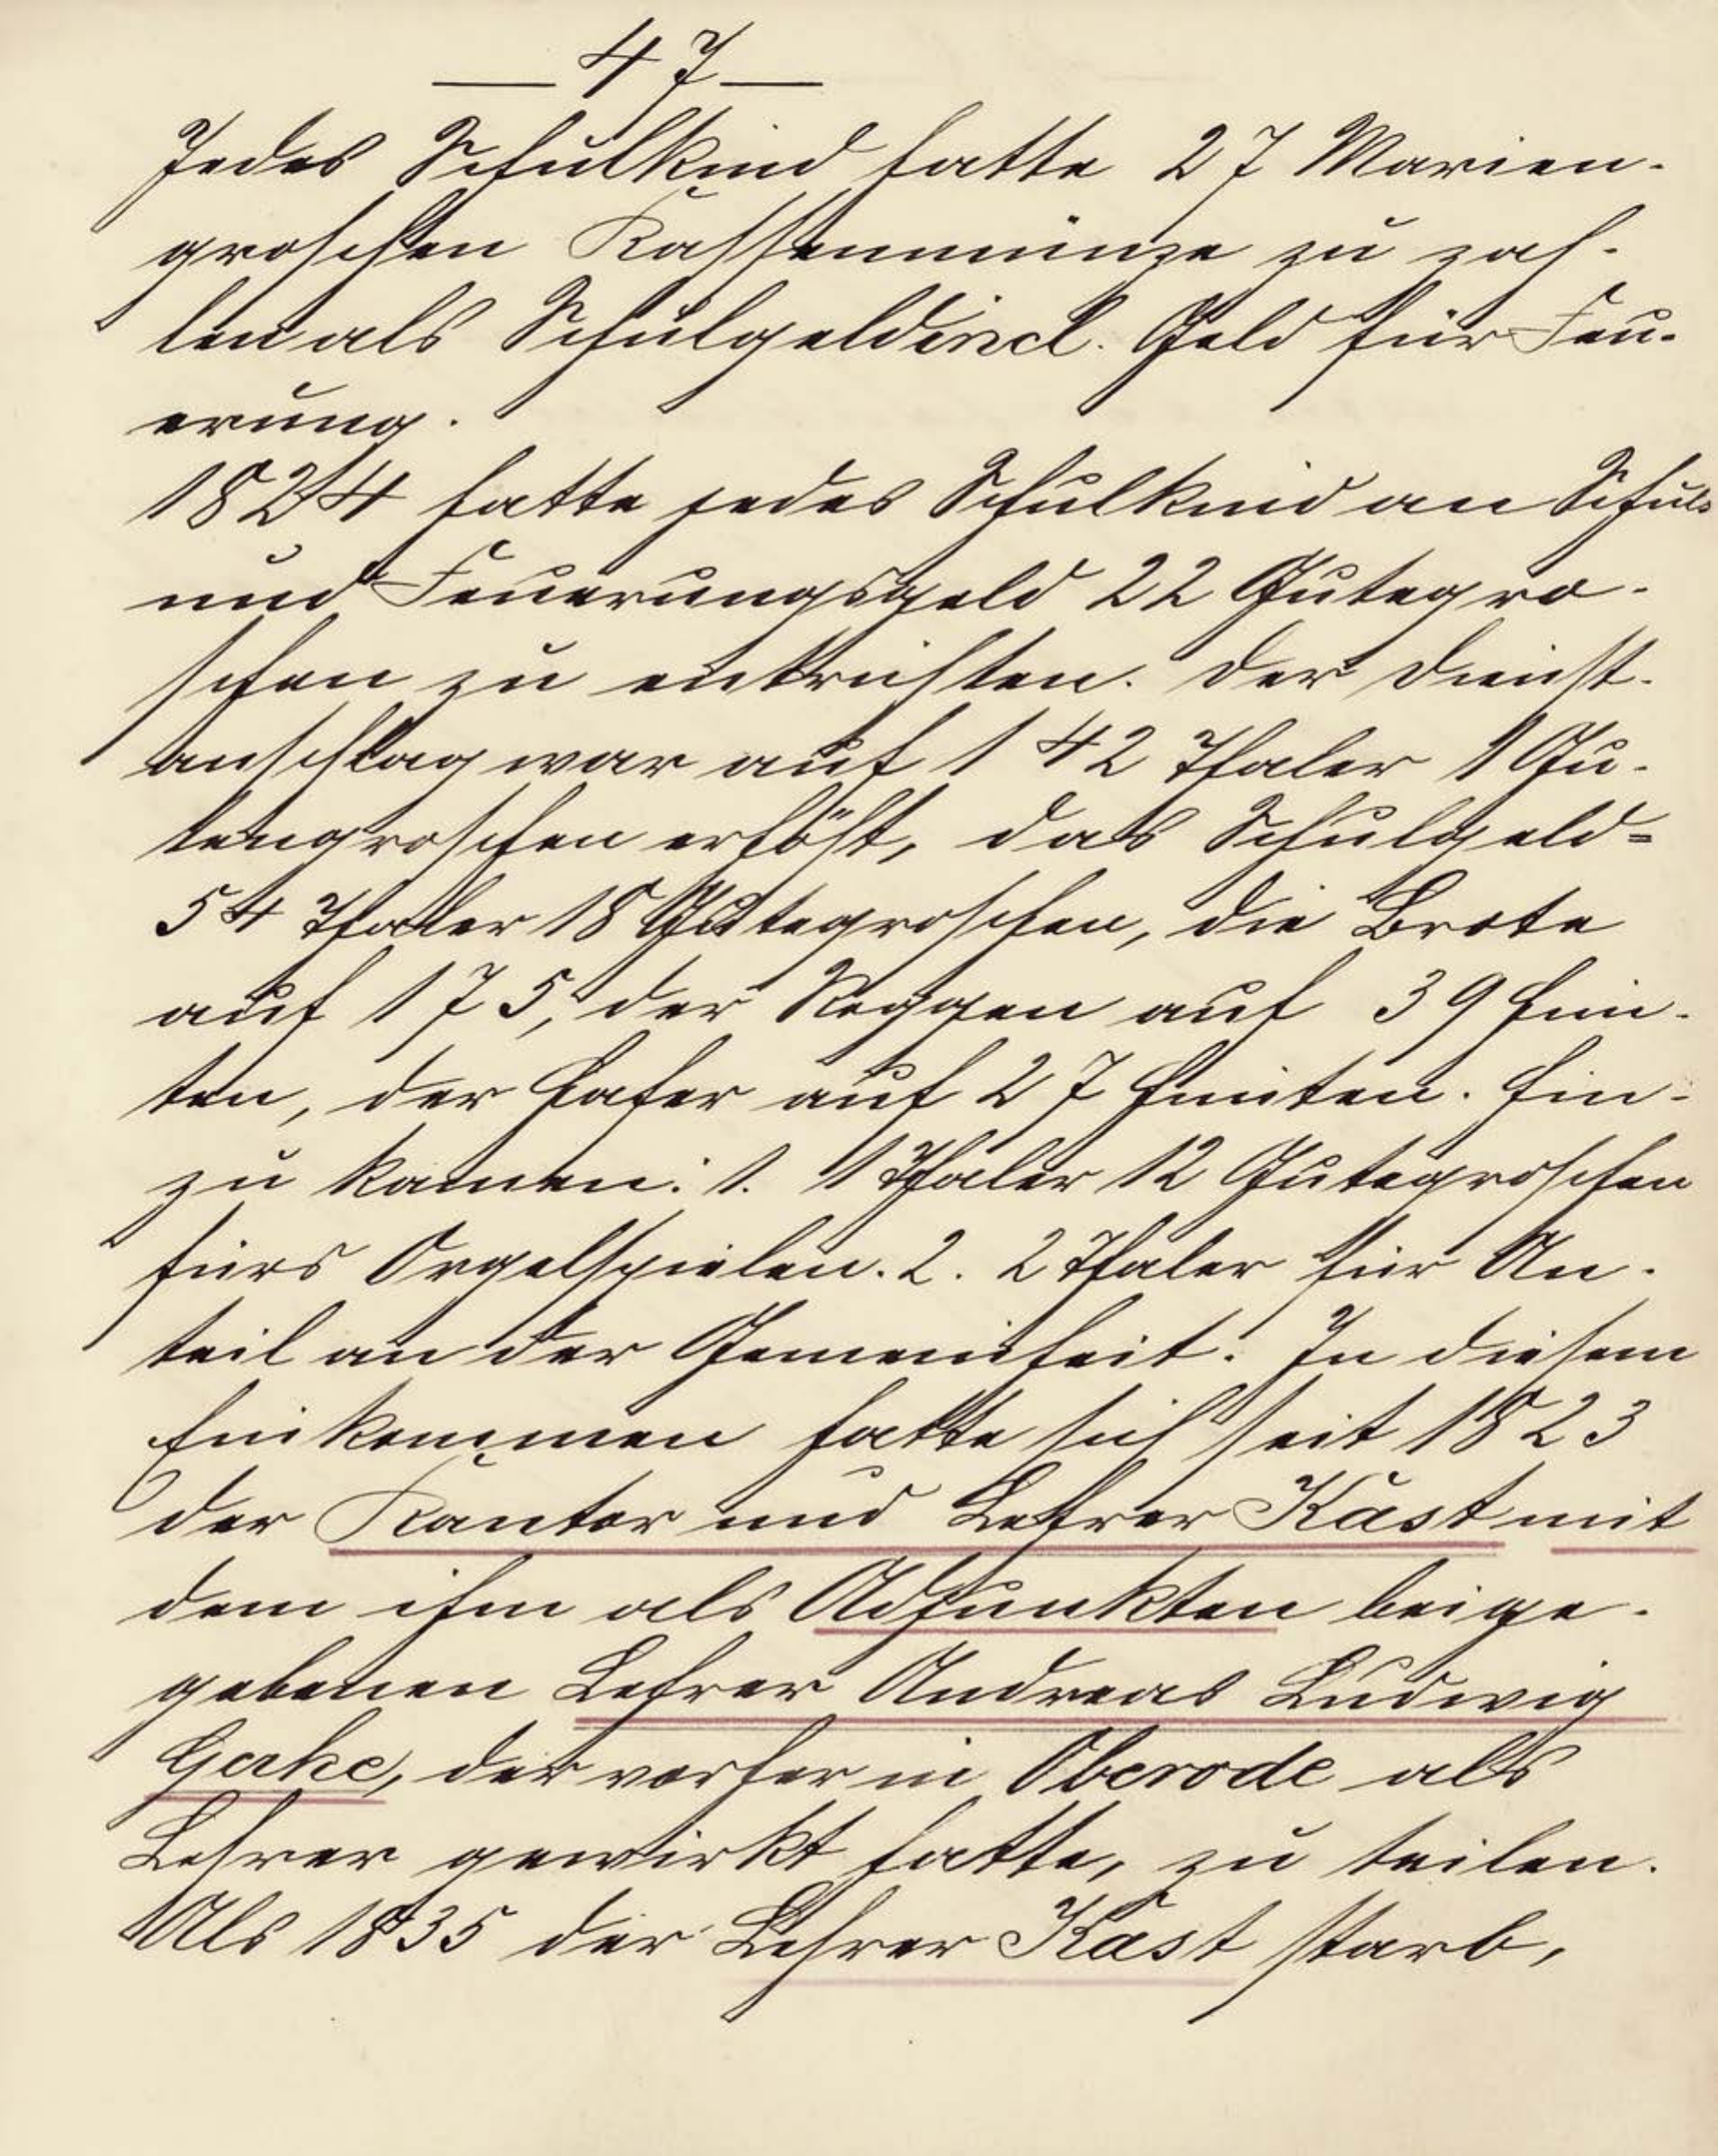 — 47 —
Jedes Schulkind hatte 27 Marien-
groschen Kassenmünze zu zah-
len als Schulgeld incl. Geld für Feu-
erung.
1824 hatte jedes Schulkind an Schul-
und Feuerungsgeld 22 Gutegro-
schen zu entrichten. Der Dienst-
anschlag war auf 142 Thaler 1 Gu-
tengroschen erhöht, das Schulgeld =
54 Thaler 18 Gutegroschen, die Brote
auf 175, der Roggen auf 39 Him-
ten, der Hafer auf 27 Himten. Hin-
zu kamen: 1. 1 Thaler 12 Gutegroschen
fürs Orgelspielen. 2. 2 Thaler für An-
teil an der Gemeinheit. In diesem
Einkommen hatte sich seit 1823
der Kantor und Lehrer Kast mit
dem ihm als Adjunkten beige-
gebenen Lehrer Andreas Ludwig
Gerke, der vorher in Oberode als
Lehrer gewirkt hatte, zu teilen.
Als 1835 der Lehrer Kast starb,